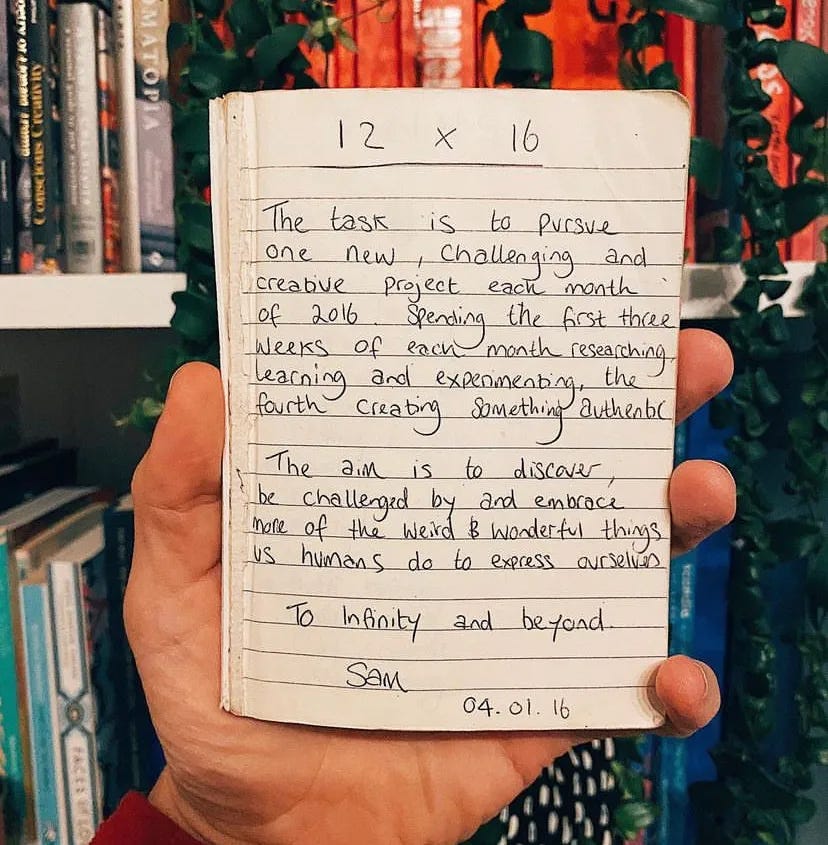 12 x 16
The task is to pursue
one new, challenging and
creative project each month
of 2016. Spending the first three
weeks of each month researching,
learning and experimenting, the
fourth creating something authentic
The aim is to discover,
be challenged by and embrace
more of the weird & wonderful things
us humans do to express ourselves
To Infinity and beyond
Sam
04.01.16
Conscious Creativity
OMATOPIA
FACES OF